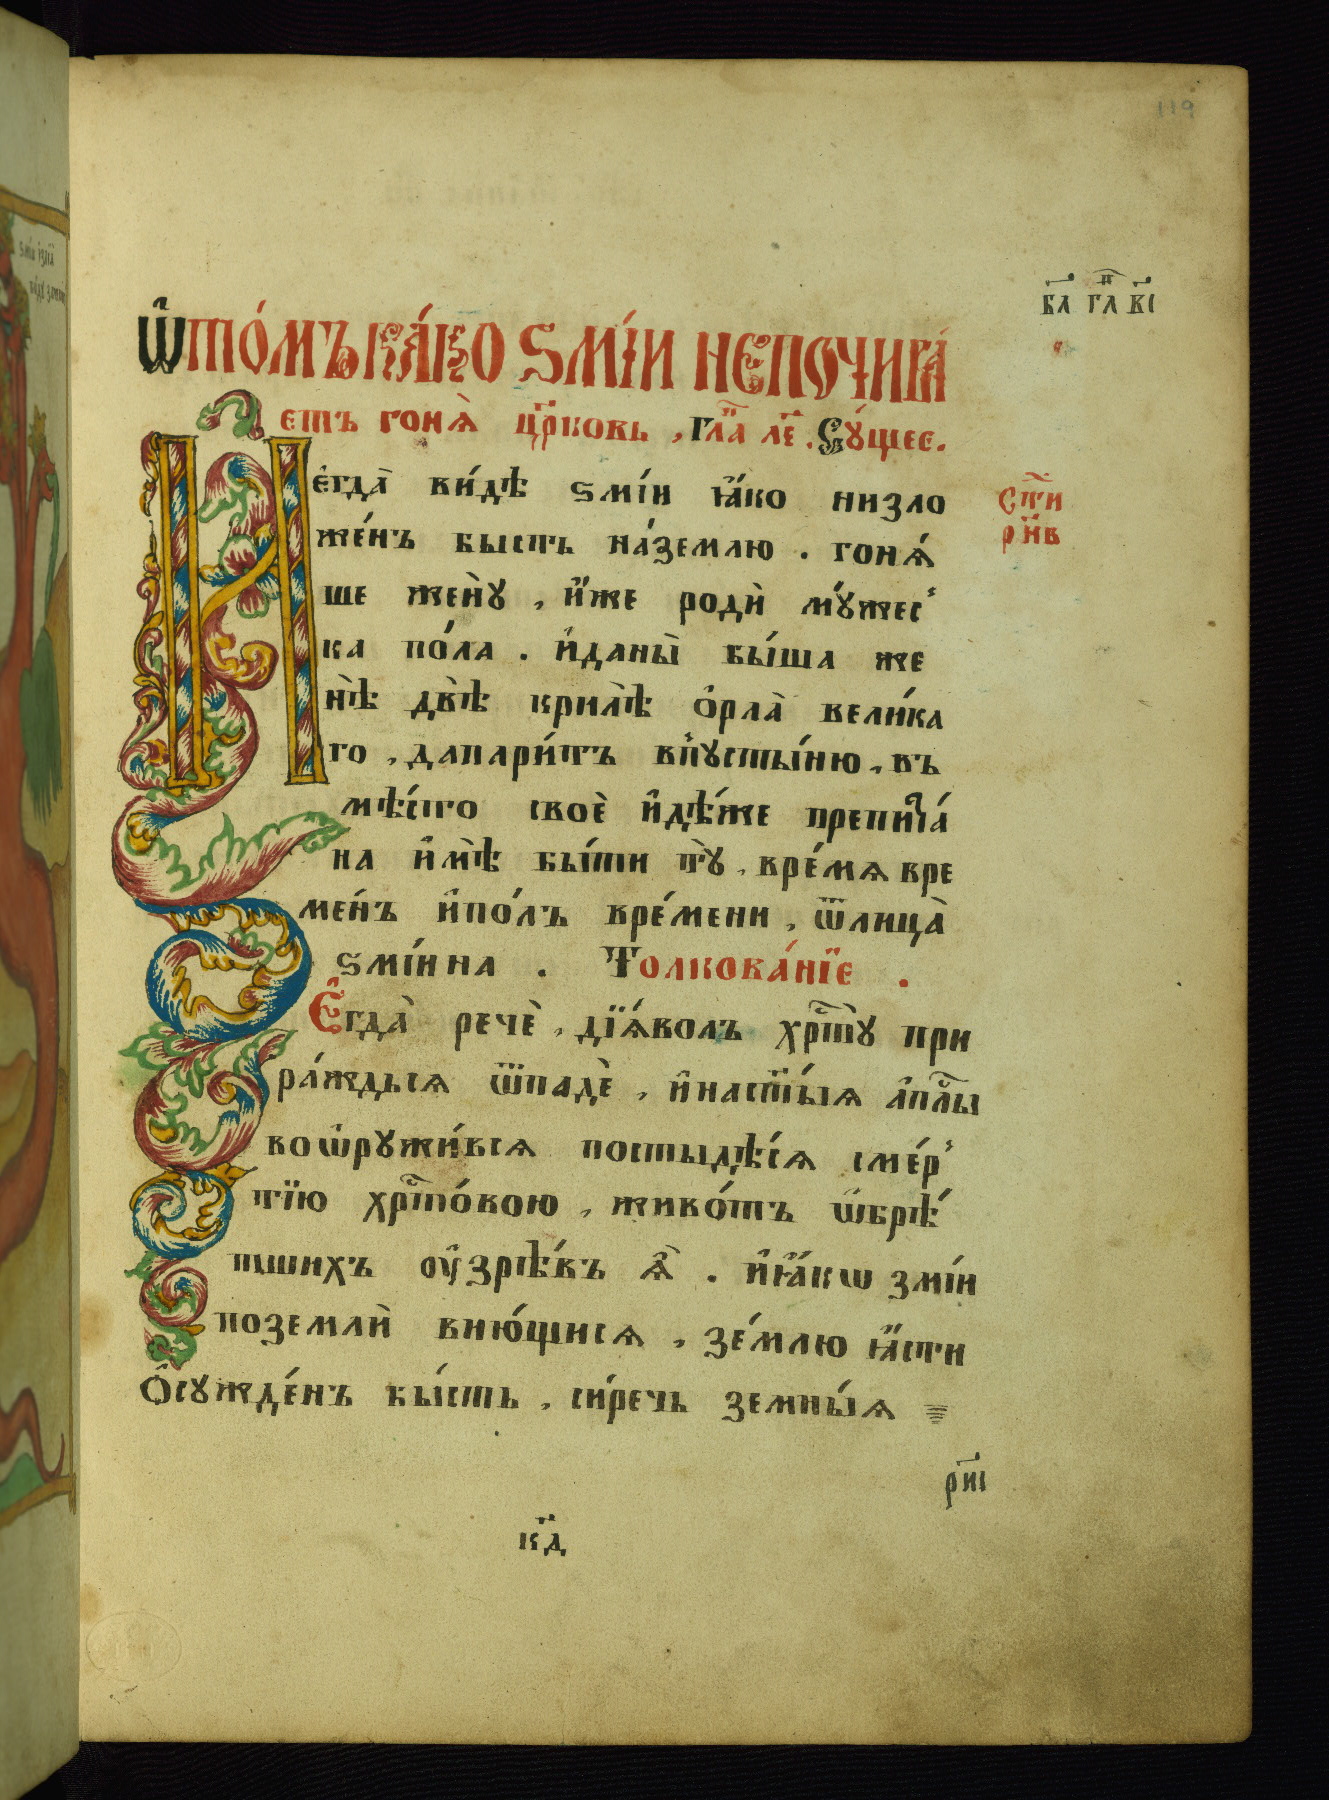 119
в҃а гл҃ в҃і
Ѿто́мъ ка́ко ѕмі́и непочива́
етъ гонѧ̀ цр҃ковь , Гла҃ ле҃ . Су́щее.
Иегда̀ ви́дѣ ѕмі́и ꙗ҆́ко низло
же́нъ бысть на́землю . гонѧ́
ше жену̀ , и҆́же родѝ му́жес
ка по́ла . и҆даны̀ бы́ша же
нѣ̀ двѣ̀ крилѣ̀ о҆рла̀ вели́ка
го , дапари́тъ впусты́ню , въ
мѣ́сто своѐ и҆дѣ́же препита́
на и҆мѣ̀ бы́ти ту̀ , вре́мѧ вре
ме́нъ и҆по́лъ вре́мени , ѿлица̀
ѕмі́ина . Толкова́нїе .
Сп҃ти
рн҃в
Е҆гда̀ речѐ , дїѧ́волъ хрⷭ҇ту̀ при
ра́ждьсѧ ѿпадѐ , и҆наст҃ы́ѧ а҆пⷭ҇лы
воѡ҆ружи́всѧ постыдѣ́сѧ сме́р
тїю хрⷭ҇то́вою , живо́тъ ѡ҆брѣ́
тшихъ оу҆зрѣ́въ ѧ҆̀ . и҆ꙗ҆́кѡ змі́и
поземлѝ вию́щисѧ , зе́млю ꙗ҆́сти
Ѻ҆сужде́нъ бы́сть , си́речь земны́ѧ
рн҃і
к҃д